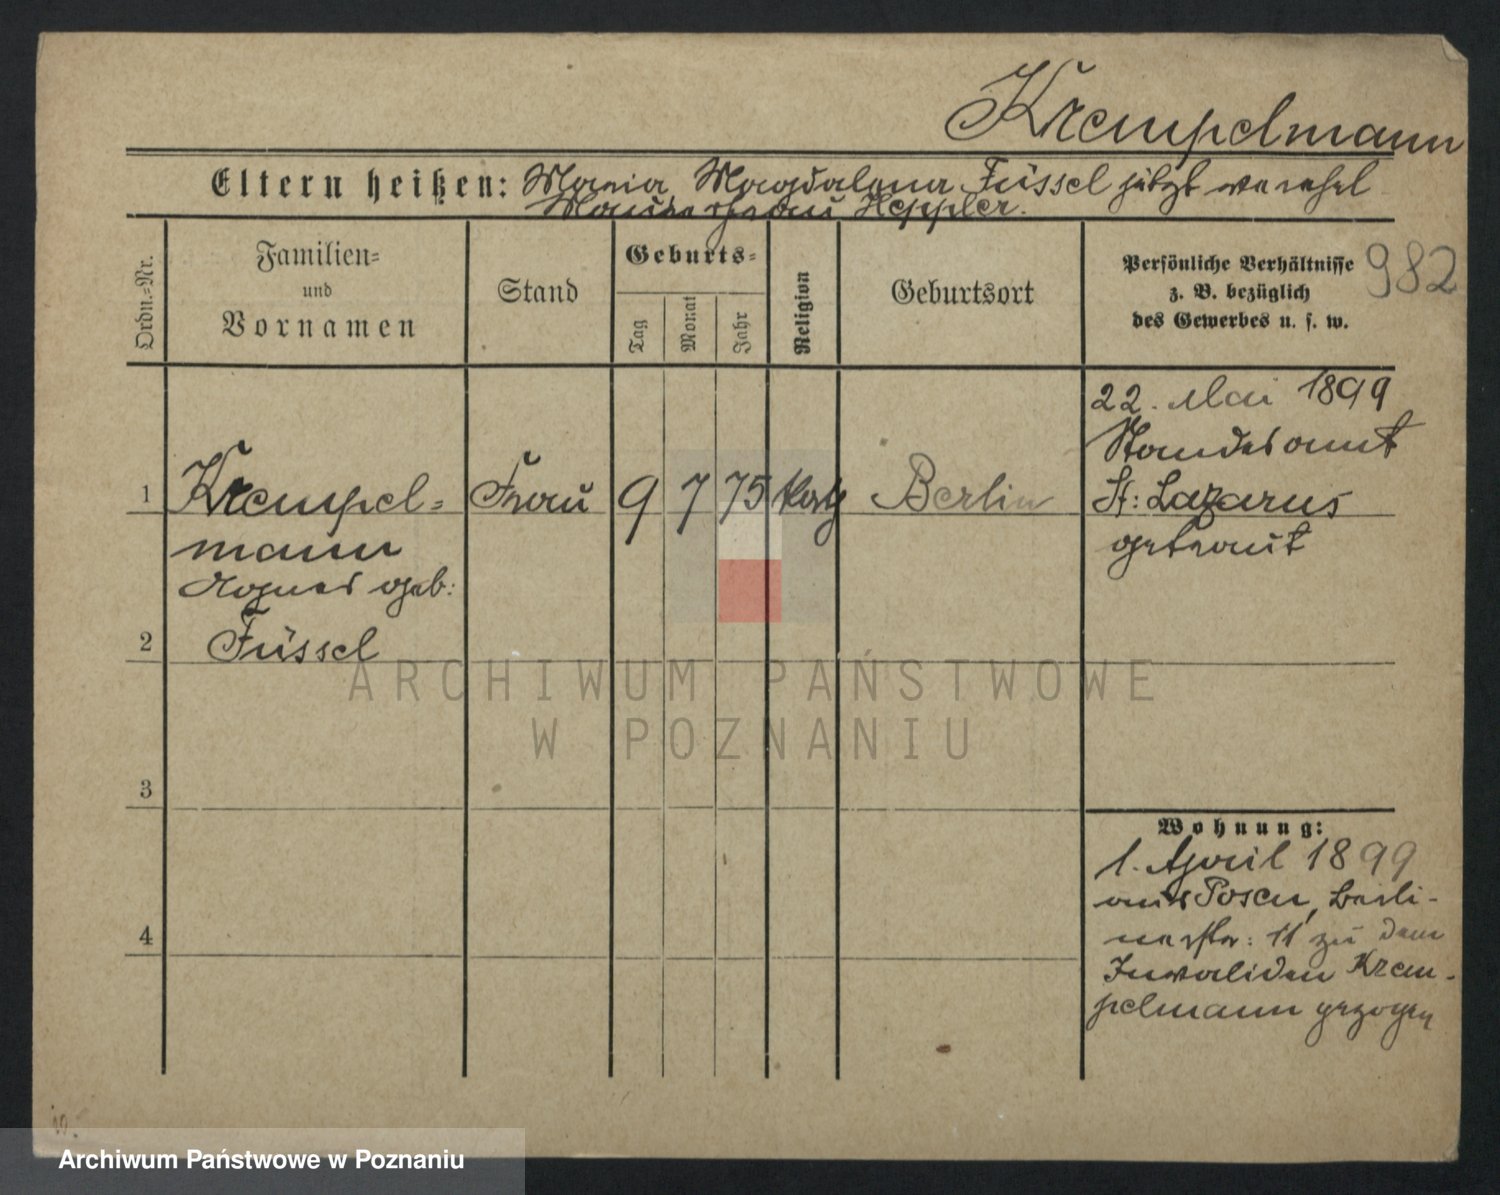 Krempelmann
Eltern heißen: Maria Magdalena Füssel jetzt verehel
Maurerfrau Heppler.
Ordn.-Nr.
Familien-
und
Vornamen
Stand
Geburts-
Tag
Monat
Jahr
Religion
Geburtsort
Persönliche Verhältnisse
z. B. bezüglich
des Gewerbes u. s. w.
982
1
Krempel-
mann
Agnes geb:
Füssel
Frau
9
7
75
kath
Berlin
22. Mai 1899
Standesamt
St: Lazarus
getraut
2
3
4
Wohnung:
1. April 1899
aus Posen, Berli-
nerstr: 11 zu dem
Invaliden Krem-
pelmann gezogen
ARCHIWUM PAŃSTWOWE
W POZNANIU
Archiwum Państwowe w Poznaniu